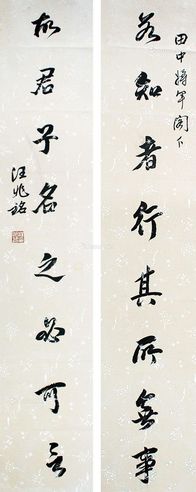 田中將軍閣下
若知者行其所無事
故君子名之必可言
汪兆銘